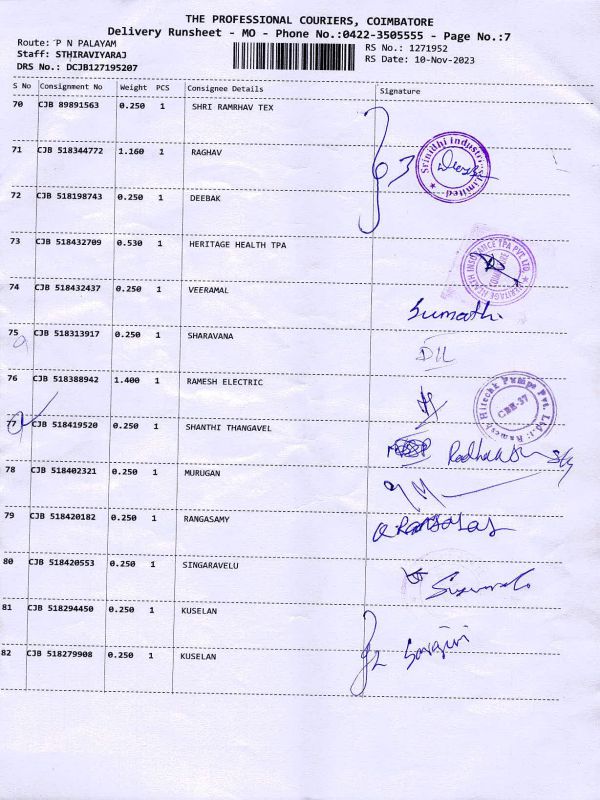 THE PROFESSIONAL COURIERS, COIMBATORE
Delivery Runsheet - MO - Phone No.:0422-3505555 - Page No.:7
Route: P N PALAYAM
Staff: STHIRAVIYARAJ
DRS No.: DCJB127195207
RS No.: 1271952
RS Date: 10-Nov-2023
S No Consignment No Weight PCS Consignee Details Signature
70 CJB 89891563 0.250 1 SHRI RAMRHAV TEX
71 CJB 518344772 1.160 1 RAGHAV 3 Srinidhi Industries Limited
72 CJB 518198743 0.250 1 DEEBAK
73 CJB 518432709 0.530 1 HERITAGE HEALTH TPA HERITAGE HEALTH INSURANCE TPA PVT. LTD. COIMBATORE
74 CJB 518432437 0.250 1 VEERAMAL Sumathi
75 CJB 518313917 0.250 1 SHARAVANA
76 CJB 518388942 1.400 1 RAMESH ELECTRIC Hitechk Pumps Pvt. Ltd. CBE-37
77 CJB 518419520 0.250 1 SHANTHI THANGAVEL
78 CJB 518402321 0.250 1 MURUGAN
79 CJB 518420182 0.250 1 RANGASAMY
80 CJB 518420553 0.250 1 SINGARAVELU
81 CJB 518294450 0.250 1 KUSELAN
82 CJB 518279908 0.250 1 KUSELAN 2